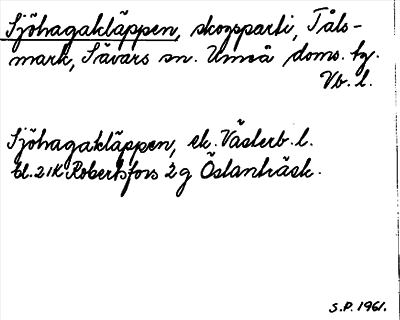 Sjöhagakläppen, skogsparti, Tåls-
mark, Sävars sn. Umeå doms. tg.
Vb. l.
Sjöhagakläppen, ek. Västerb. l.
bl. 21K Robertsfors 2 g Östanträsk.
S.P. 1961.